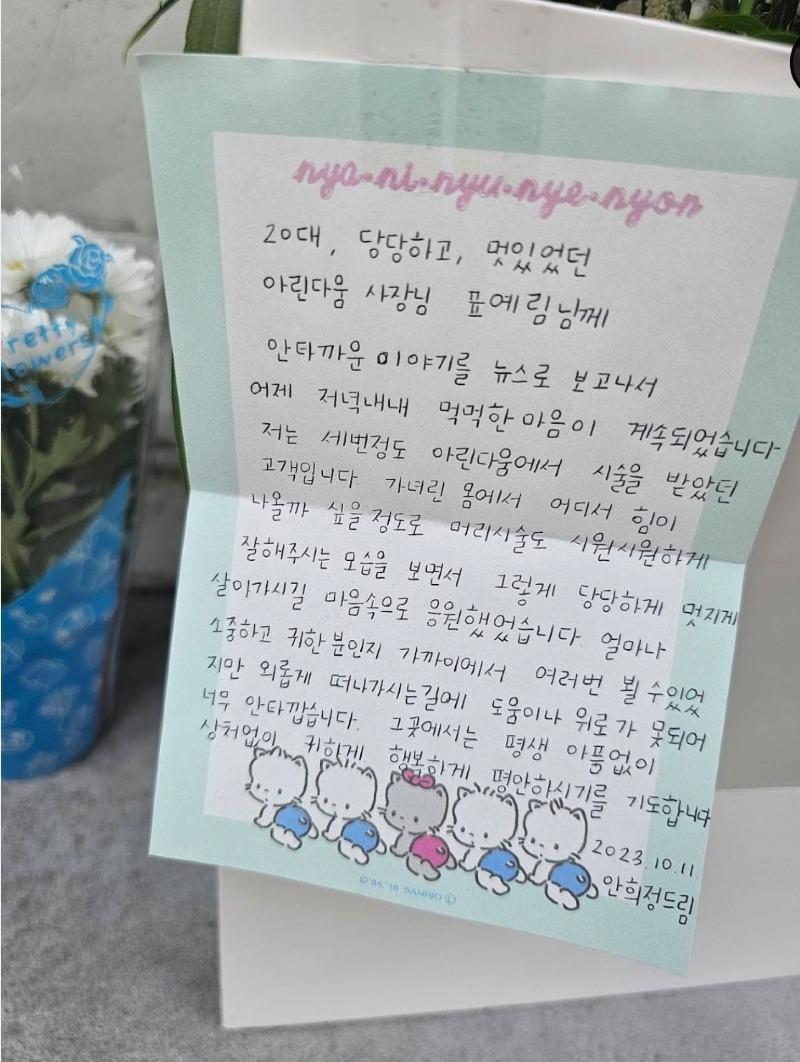 nya·ni·nyu·nye·nyon
20대, 당당하고, 멋있었던
아린다움 사장님 표예림님께
안타까운 이야기를 뉴스로 보고나서
어제 저녁내내 먹먹한 마음이 계속되었습니다
저는 세번정도 아린다움에서 시술을 받았던
고객입니다. 가녀린 몸에서 어디서 힘이
나올까 싶을 정도로 머리시술도 시원시원하게
잘해주시는 모습을 보면서 그렇게 당당하게 멋지게
살아가시길 마음속으로 응원했었습니다. 얼마나
소중하고 귀한 분인지 가까이에서 여러번 뵐 수있었
지만 외롭게 떠나가시는길에 도움이나 위로가 못되어
너무 안타깝습니다. 그곳에서는 평생 아픔없이
상처없이 귀하게 행복하게 평안하시기를 기도합니다
2023.10.11.
안희정드림
©'84,'18 SANRIO Ⓛ
retty
lowers